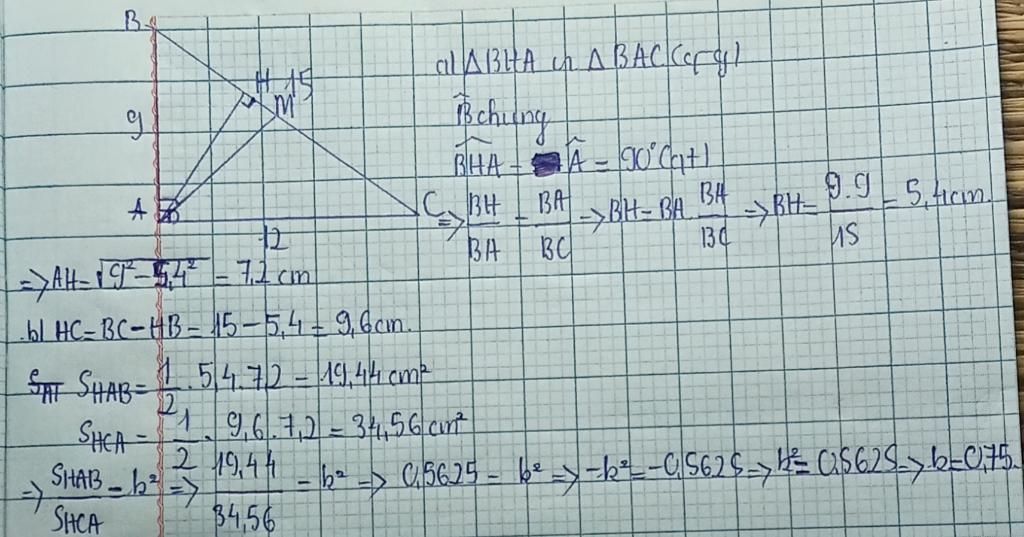 B
H 15
M
9
A
C
12
a) ΔBHA ∽ ΔBAC (g-g)
B̂ chung
BHA = Â = 90° (gt)
=> BH/BA = BA/BC => BH = BA . BA/BC => BH = 9.9/15 = 5,4cm.
=> AH = √(9² - 5,4²) = 7,2 cm
b) HC = BC - HB = 15 - 5,4 = 9,6cm.
S_HAB = 1/2 . 5,4 . 7,2 = 19,44 cm²
S_HCA = 1/2 . 9,6 . 7,2 = 34,56 cm²
=> S_HAB/S_HCA = k² => 19,44/34,56 = k² => 0,5625 = k² => -k² = -0,5625 => k² = 0,5625 => k = 0,75.